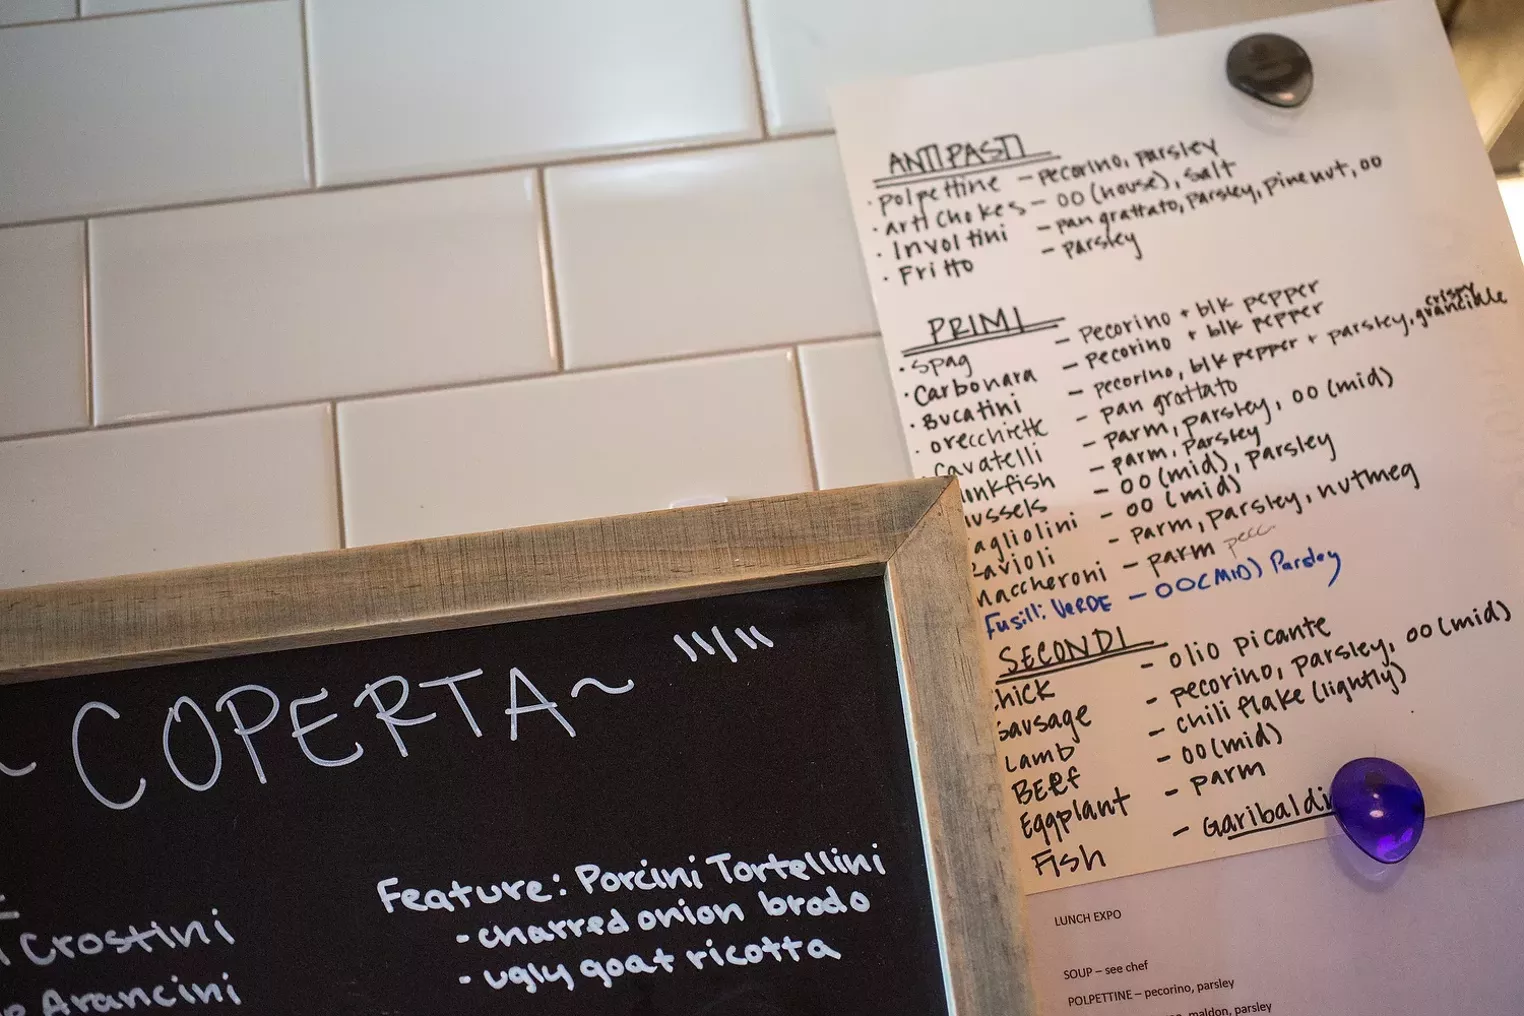 ANTIPASTI
• Polpettine - pecorino, parsley
• Artichokes - OO (house), salt
• Involtini - pan grattato, parsley, pinenut, OO
• Fritto - parsley
PRIMI
• Spag - pecorino + blk pepper
• Carbonara - pecorino + blk pepper
• Bucatini - pecorino, blk pepper + parsley, crispy
• orecchiette - pan grattato
cavatelli - parm, parsley, OO (mid)
onkfish - parm, parsley
ussels - OO (mid), parsley
agliolini - OO (mid)
Ravioli - parm, parsley, nutmeg
Maccheroni - parm pecc
Fusilli VERDE - OO (MID) Parsley
SECONDI
hick - olio picante
Sausage - pecorino, parsley, OO (mid)
Lamb - chili flake (lightly)
BEEF - OO (mid)
Eggplant - parm
Fish - Garibaldi
LUNCH EXPO
SOUP – see chef
POLPETTINE – pecorino, parsley
maldon, parsley
~ COPERTA ~ 11/11
Feature: Porcini Tortellini
- charred onion brodo
- ugly goat ricotta
Crostini
Arancini